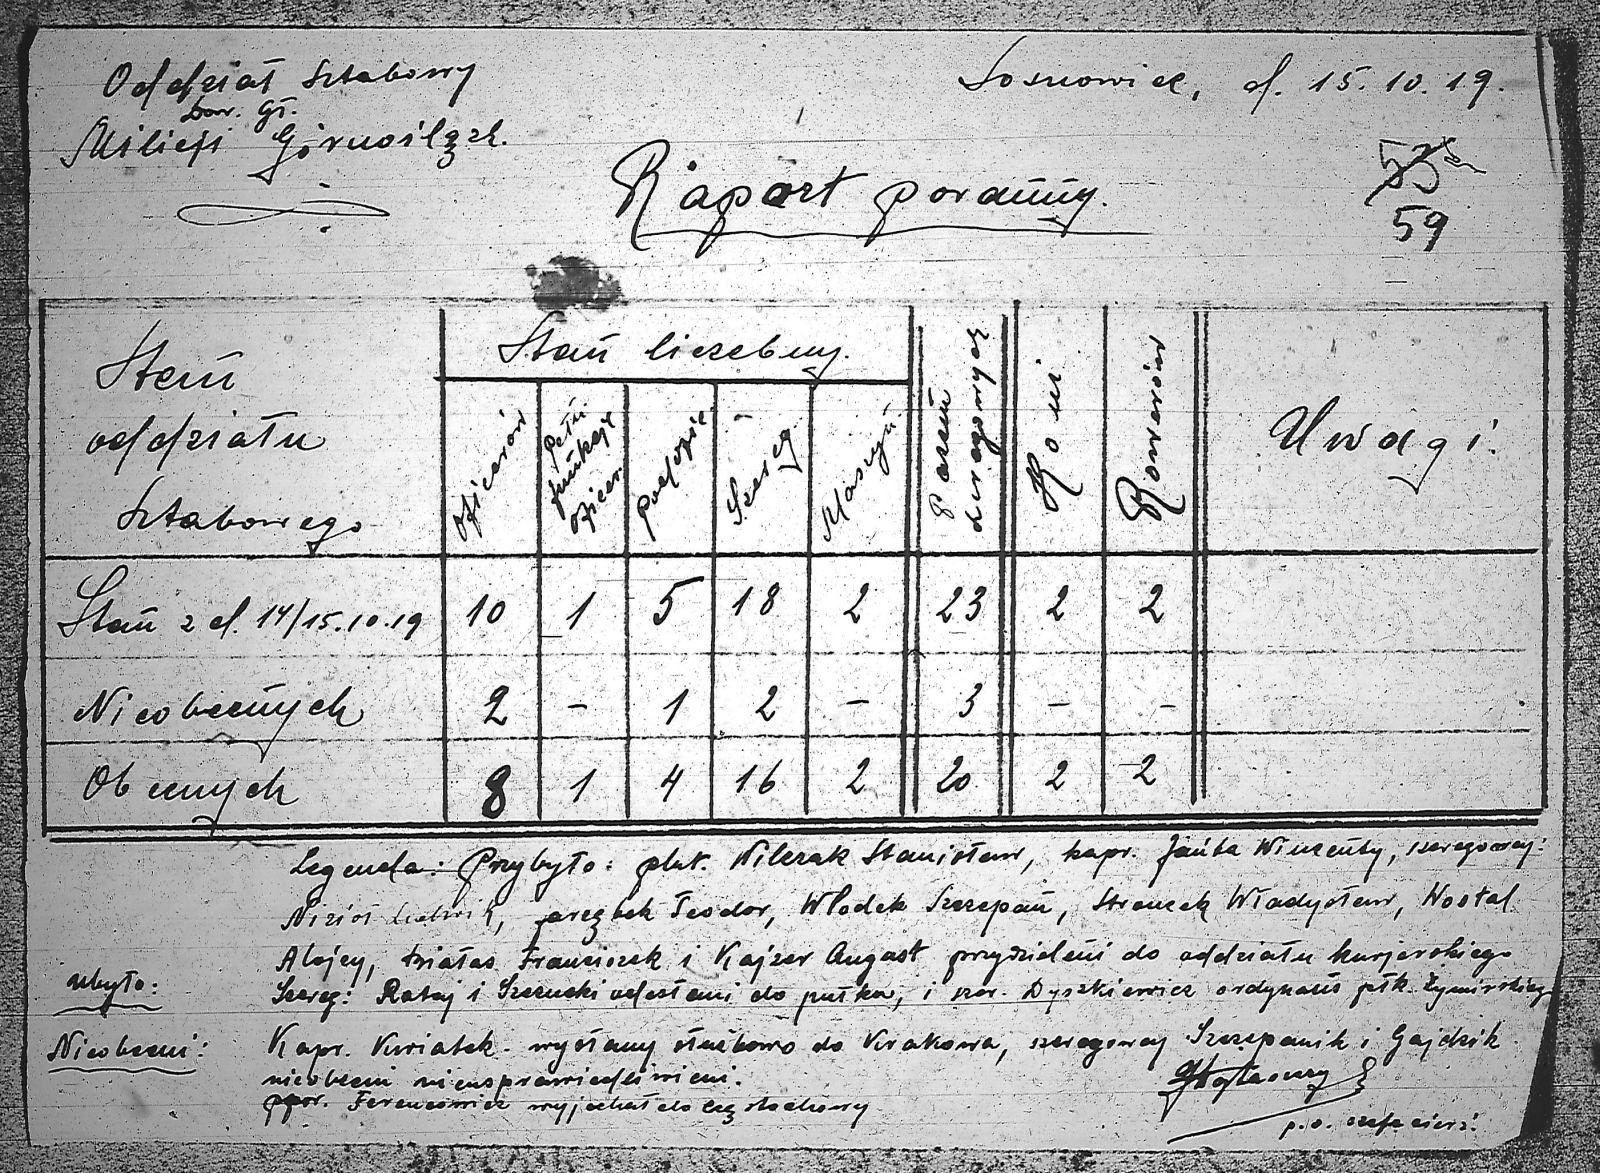 Oddział Sztabowy
Dow. Gł.
Milicji Górnośląsk.
Sosnowiec, d. 15.10.19.
53
59
Raport poranny.
Stan
oddziału
Sztabowego
Stan liczebny.
Oficerów
Pełn. funkcje oficer.
podofic.
Szereg.
Maszyn
Razem szeregowych
Koni
Rowerów
Uwagi.
Stan z d. 14/15.10.19 10 1 5 18 2 23 2 2
Nieobecnych 2 – 1 2 – 3 – –
Obecnych 8 1 4 16 2 20 2 2
Legenda: Przybyło: plut. Wilczak Stanisław, kapr. Janta Wincenty, szeregowcy:
Nizioł Ludwik, Teodor, Włodek Szczepan, Władysław, Wostal
Alojzy, Franciszek i Kajzer August przydzieleni do oddziału kurjerskiego
ubyło: Szereg: Rataj i Szczucki odesłani do pułków, i szer. Dyszkiewicz ordynans płk. Żymirskiego
Nieobecni: Kapr. Kwiatek wysłany służbowo do Krakowa, szeregowcy Szczepanik i Gajdzik
nieobecni nieusprawiedliwieni.
ppor. Ferencowicz wyjechał do Częstochowy
p.o. szefa